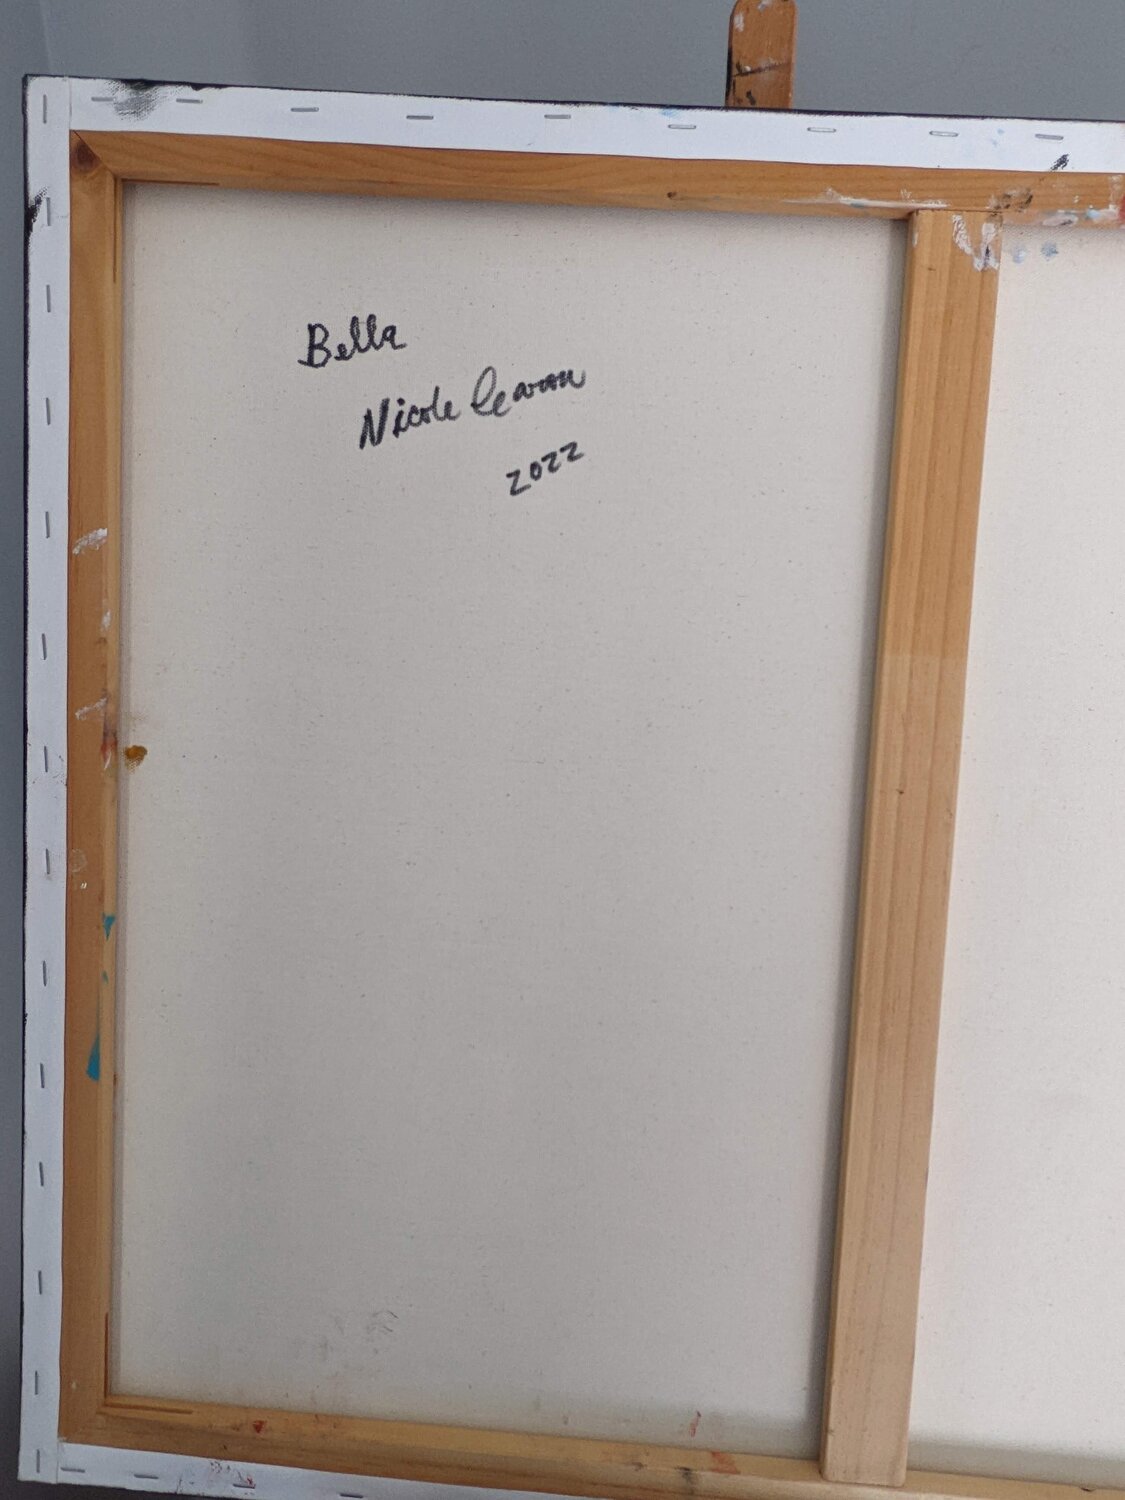 Bella
Nicole Leaman
2022